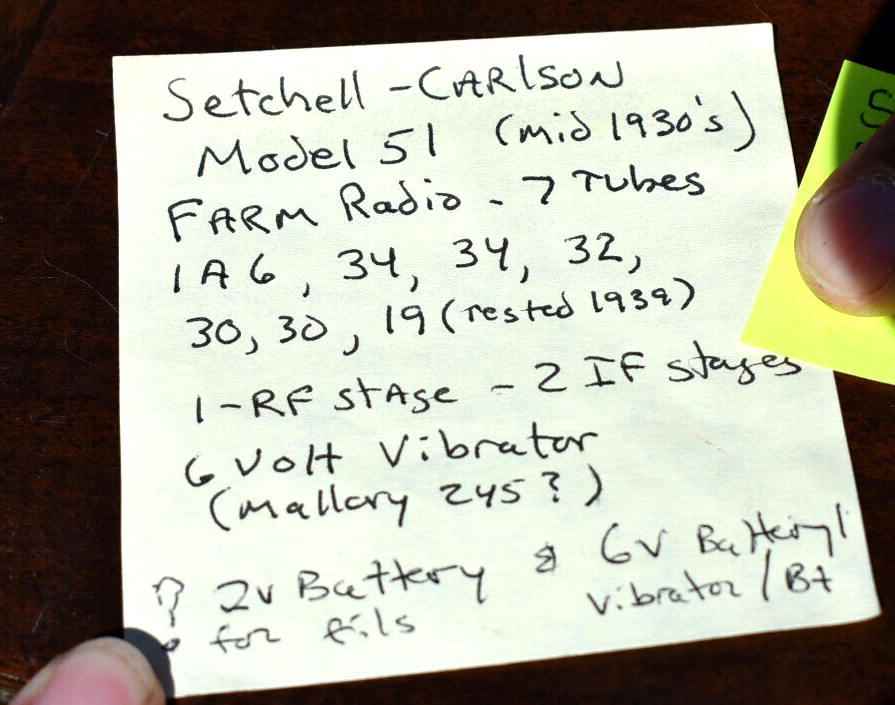 Setchell - CARlSON
Model 51 (mid 1930's)
FARM Radio - 7 Tubes
1A6, 34, 34, 32,
30, 30, 19 (Tested 1939)
1-RF stAge - 2 IF stages
6 Volt Vibrator
(Mallory 245?)
? 2v Battery & 6v Battery
for fils vibrator/B+
S